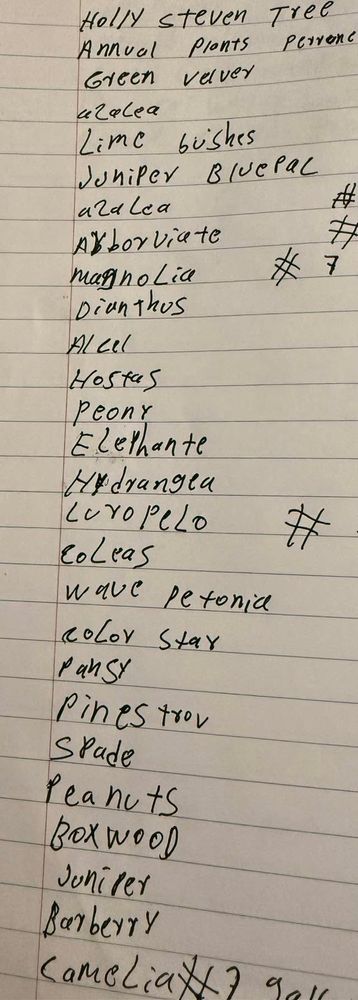 Holly Steven Tree
Annual Plants Perrone
Green velver
azalea
Lime bushes
Juniper Bluepac
azalea #
Arborviate #
magnolia # 7
Dianthus
Alcel
Hostas
Peony
Elephante
Hydrangea
Luropelo #
coleas
wave petonia
color star
Pansy
Pinestrov
Spade
Peanuts
BOXWOOD
Juniper
Barberry
Camelia # 7 gall